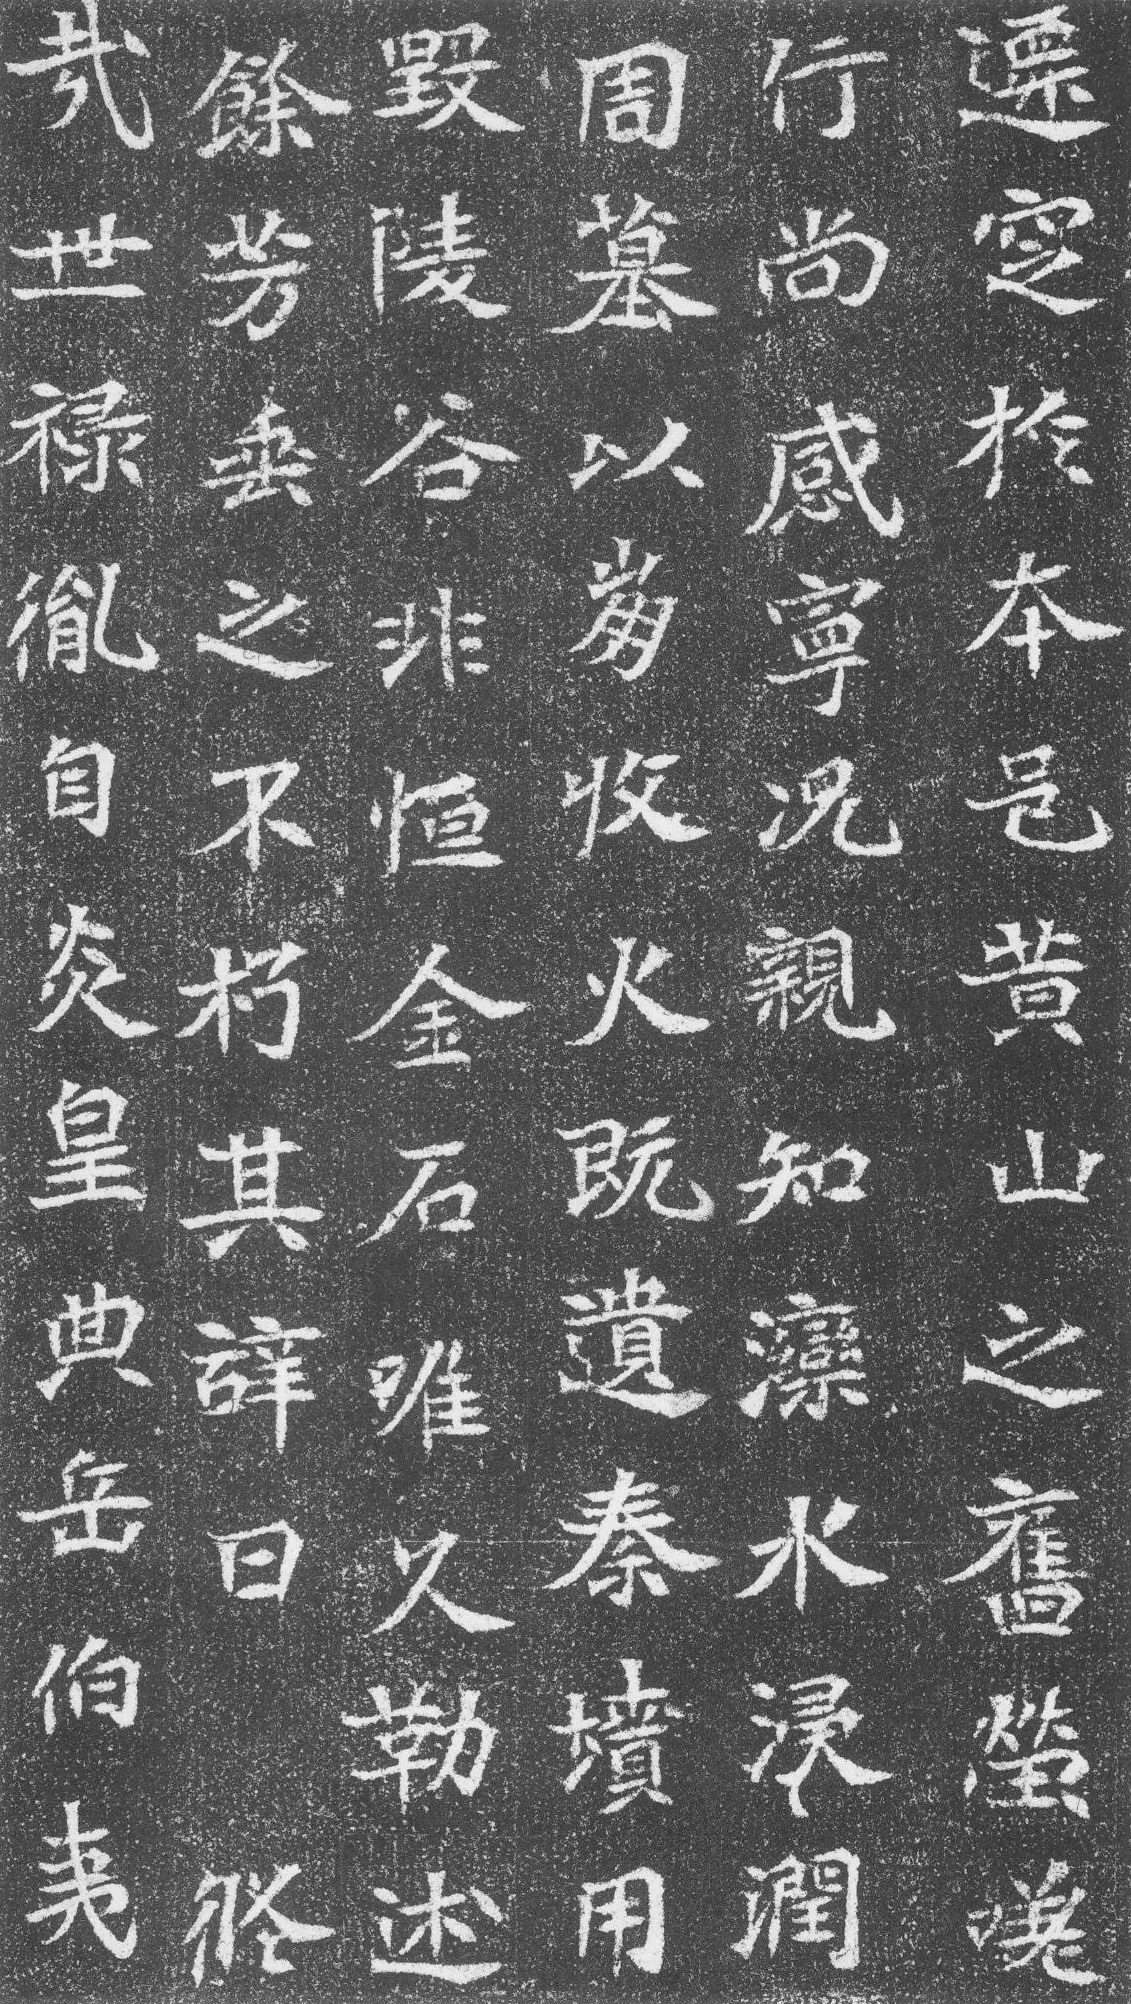 遷窆於本邑黄山之舊塋嘵
行尚感寧況親知灓水浸潤
周墓以蒭收火既遺秦墳用
毀陵谷非恒金石唯久勒述
餘芳垂之不朽其辭曰 脩
哉世禄胤自炎皇典岳伯夷